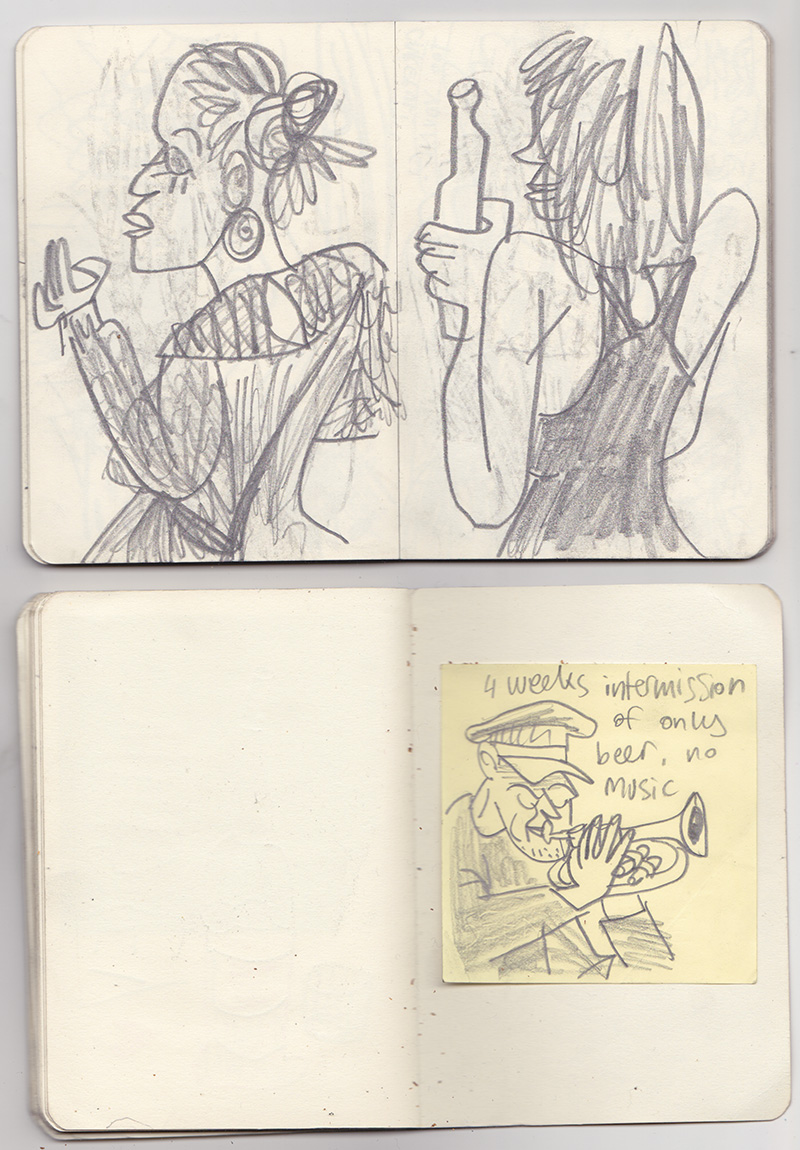 4 weeks intermission
of only
beer, no
Music